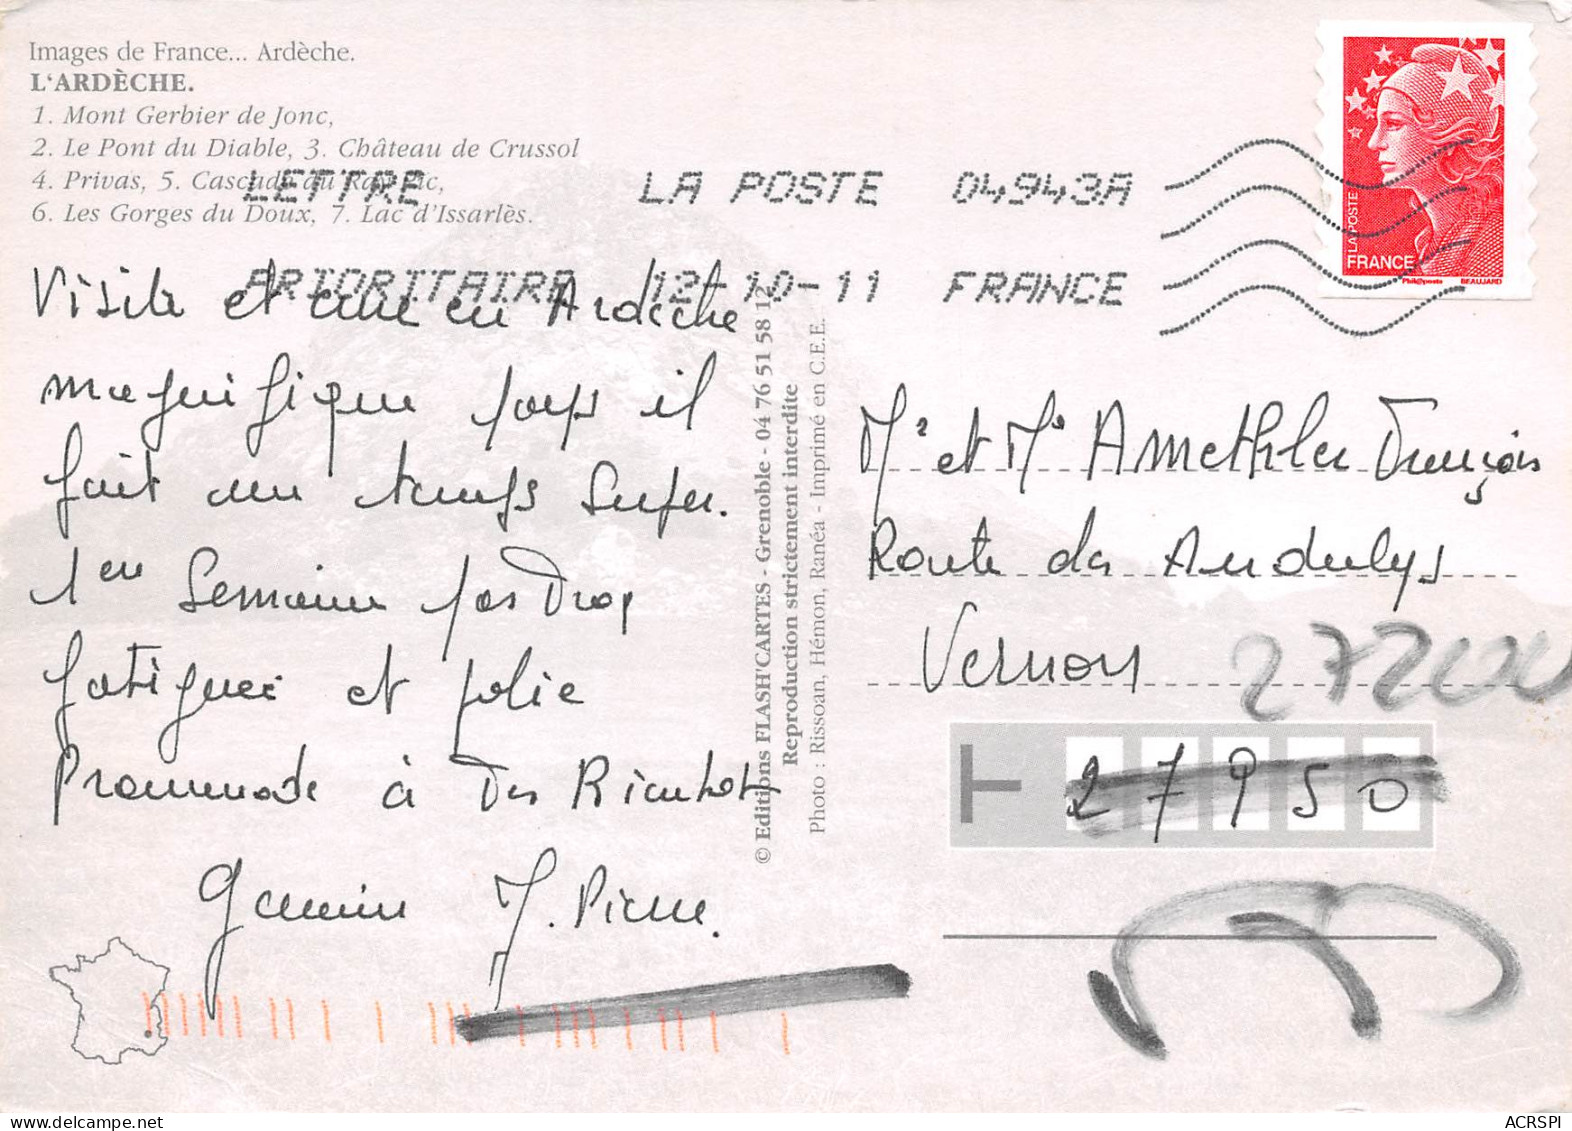 Images de France... Ardèche.
L'ARDÈCHE.
1. Mont Gerbier de Jonc,
2. Le Pont du Diable, 3. Château de Crussol
4. Privas, 5. Cascade du Ray-Pic,
6. Les Gorges du Doux, 7. Lac d'Issarlès.
LETTRE LA POSTE 04943A
PRIORITAIRE 12-10-11 FRANCE
LA POSTE
FRANCE
Phil@poste BEAUJARD
Visite et cure en Ardèche
magnifique pays il
fait un temps super.
1er semaine pas trop
fatiguée et jolie
Promenade à
J. Pierre.
© Editions FLASH'CARTES - Grenoble - 04 76 51 58 12
Reproduction strictement interdite
Photo : Rissoan, Hémon, Ranéa - Imprimé en C.E.E.
Mr et Me Amethler François
Route des Andelys
Vernon 27200
27950
ACRSPI